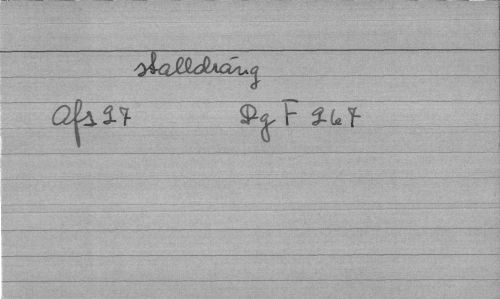 stalldräng
Afs 27 Rg F 267